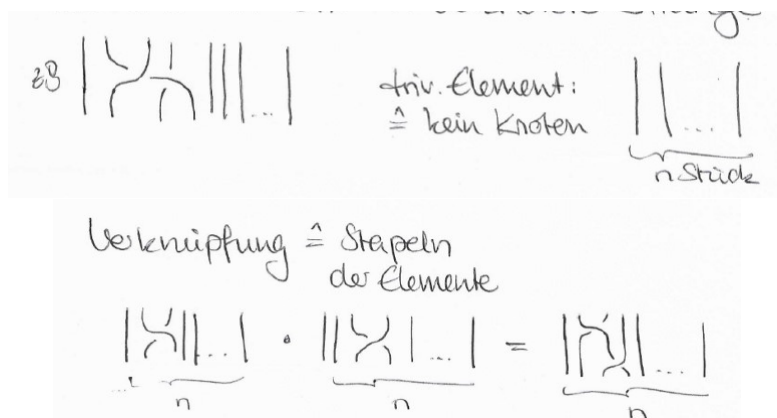 zB
triv. Element:
≙ kein Knoten
n Stück
Verknüpfung ≙ Stapeln
der Elemente
· =
n n n